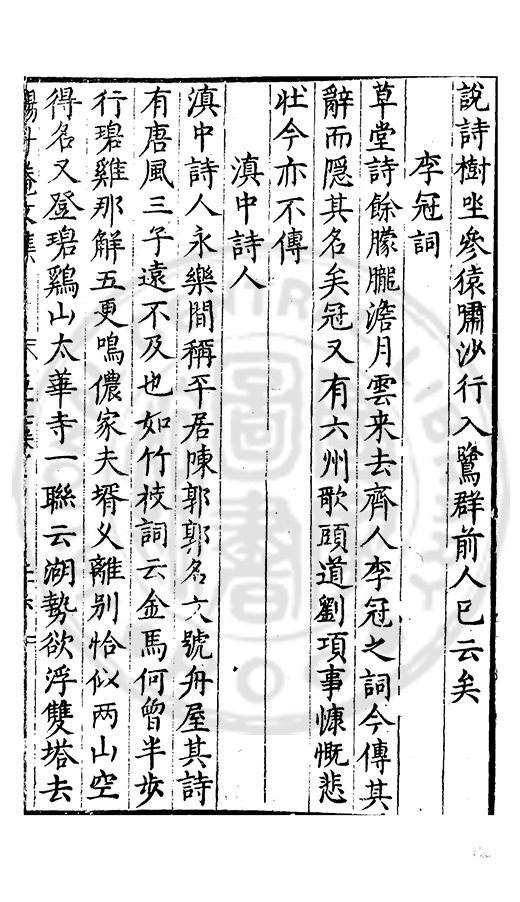 說詩樹坐參猿嘯沙行入鷺群前人已云矣
李冠詞
草堂詩餘朦朧澹月雲来去齊人李冠之詞今傳其
辭而隱其名矣冠又有六州歌頭道劉項事慷慨悲
壯今亦不傳
滇中詩人
滇中詩人永樂間稱平居陳郭郭名文號舟屋其詩
有唐風三子遠不及也如竹枝詞云金馬何曾半步
行碧雞那解五更鳴儂家夫壻久離别恰似两山空
得名又登碧鷄山太華寺一聯云湖勢欲浮雙塔去